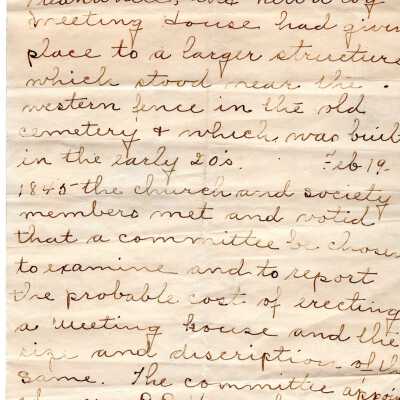 meeting House had given
place to a larger structure
which stood near the
western fence in the old
cemetery & which, was built
in the early 20's. Feb 19-
1845 the church and society
members met and votid
that a committee be chosen
to examine and to report
the probable cost of erecting
a meeting house and the
size and discription of the
same. The committee appoin